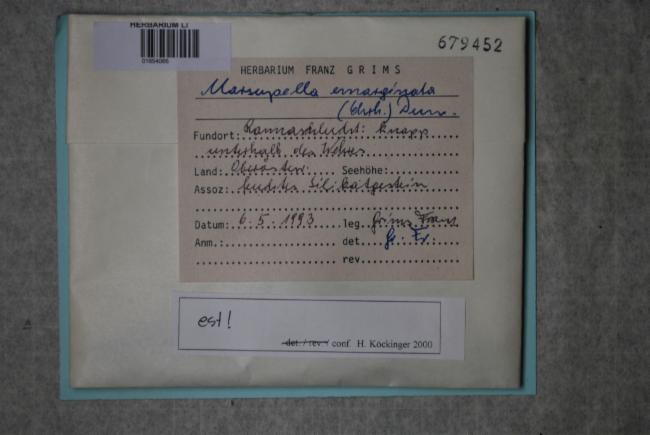 HERBARIUM LI
01654065
679452
HERBARIUM FRANZ GRIMS
Marsupella emarginata
(Ehrh.) Dum.
Fundort: Rannaschlucht: knapp
unterhalb des Wehres
Land: Oberösterr. Seehöhe:
Assoz: feuchtes Silikatgestein
Datum: 6.5.1993 leg. Grims Franz
Anm.: det. Gr. Fr.
rev.
est!
det. / rev. / conf. H. Köckinger 2000